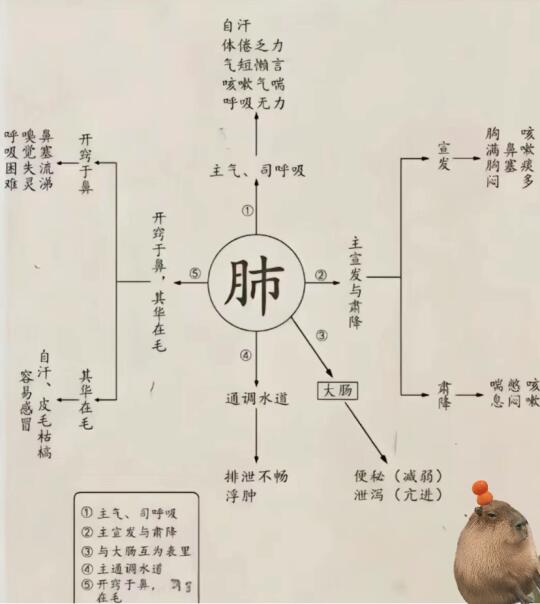 自汗
体倦乏力
气短懒言
咳嗽气喘
呼吸无力
主气、司呼吸
①
肺
②
主宣发与肃降
宣发
咳嗽痰多
鼻塞
胸满胸闷
肃降
咳嗽
憋闷
喘息
③
大肠
便秘（减弱）
泄泻（亢进）
④
通调水道
排泄不畅
浮肿
⑤
开窍于鼻，其华在毛
开窍于鼻
鼻塞流涕
嗅觉失灵
呼吸困难
其华在毛
自汗、皮毛枯槁
容易感冒
① 主气、司呼吸
② 主宣发与肃降
③ 与大肠互为表里
④ 主通调水道
⑤ 开窍于鼻，
在毛